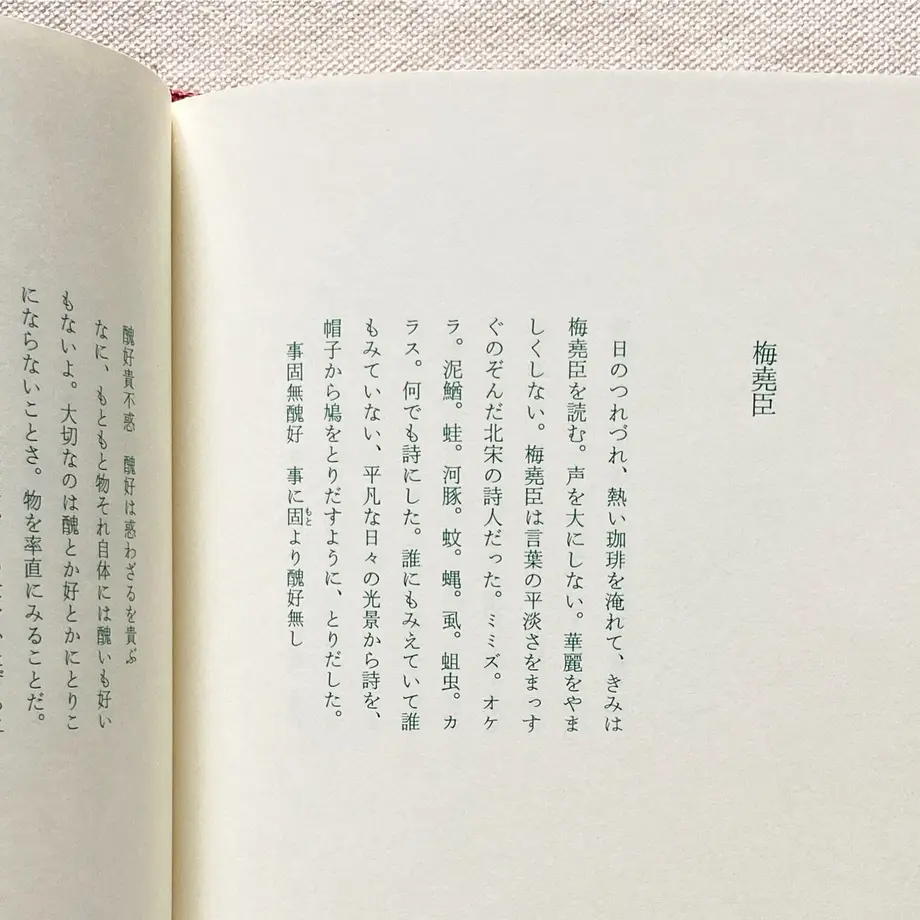 梅堯臣
日のつれづれ、熱い珈琲を淹れて、きみは
梅堯臣を読む。声を大にしない。華麗をやま
しくしない。梅堯臣は言葉の平淡さをまっす
ぐのぞんだ北宋の詩人だった。ミミズ。オケ
ラ。泥鰌。蛙。河豚。蚊。蝿。虱。蛆虫。カ
ラス。何でも詩にした。誰にもみえていて誰
もみていない、平凡な日々の光景から詩を、
帽子から鳩をとりだすように、とりだした。
事固無醜好　事に固もとより醜好無し
醜好貴不惑　醜好は惑わざるを貴ぶ
なに、もともと物それ自体には醜いも好い
もないよ。大切なのは醜とか好とかにとりこ
にならないことさ。物を率直にみることだ。